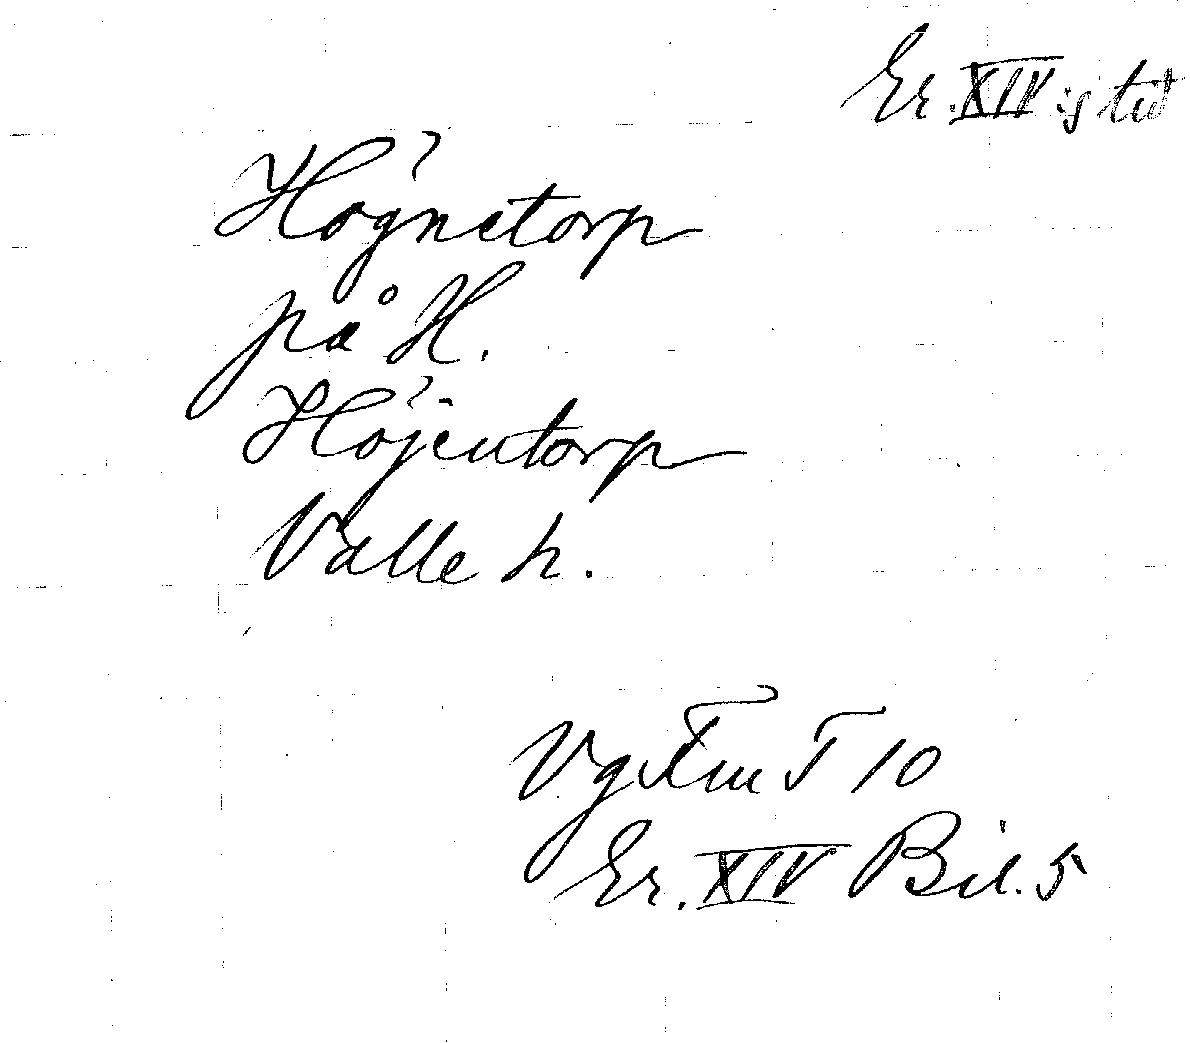 Er. XIV:s tid
Högnetorp
på H.
Höjentorp
Valle h.
Vg Fm T 10
Er. XIV Bil. 5